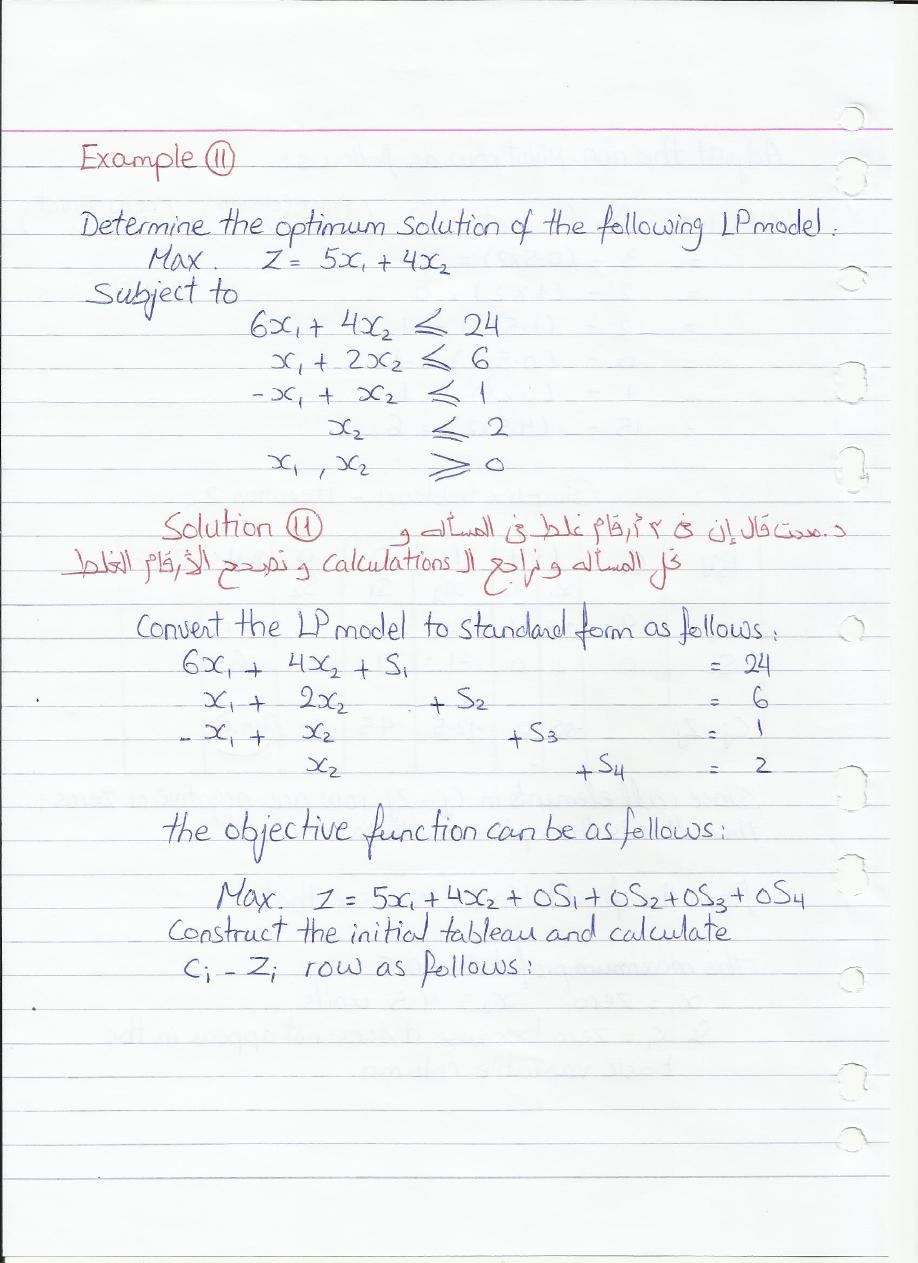 Example ⑪
Determine the optimum solution of the following LP model.
Max. Z = 5x₁ + 4x₂
Subject to
6x₁ + 4x₂ ≤ 24
x₁ + 2x₂ ≤ 6
-x₁ + x₂ ≤ 1
x₂ ≤ 2
x₁ , x₂ ≥ 0
Solution ⑪ د. مدحت قال إن فى ٣ أرقام غلط فى المسأله و
نحل المسأله و نراجع الـ calculations و نصحح الأرقام الغلط
Convert the LP model to standard form as follows:
6x₁ + 4x₂ + S₁ = 24
x₁ + 2x₂ + S₂ = 6
- x₁ + x₂ + S₃ = 1
x₂ + S₄ = 2
the objective function can be as follows:
Max. Z = 5x₁ + 4x₂ + 0S₁ + 0S₂ + 0S₃ + 0S₄
Construct the initial tableau and calculate
Cj - Zj row as follows: